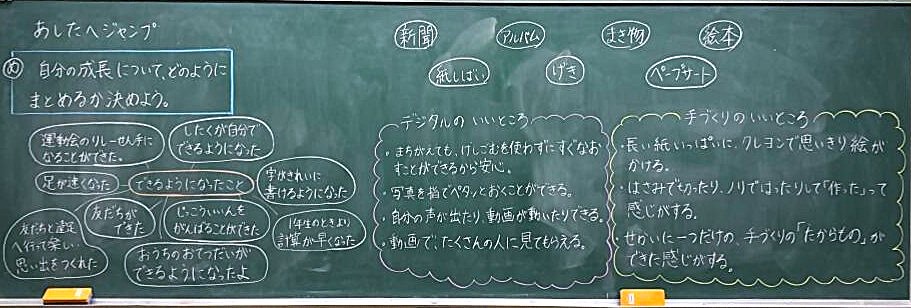 あしたへジャンプ
め
自分の成長について、どのように
まとめるか決めよう。
運動会のリレーせん手に
なることができた。
したくが自分で
できるようになった
足が速くなった
できるようになったこと
字がきれいに
書けるようになった
友だちが
できた
じっこういいんを
がんばることができた
1年生のときより
計算が早くなった
友だちと遠足
へ行って楽しい
思い出をつくれた
おうちのおてつだいが
できるようになったよ
新聞
アルバム
まき物
絵本
紙しばい
げき
ペープサート
デジタルのいいところ
・まちがえても、けしごむを使わずにすぐなお
すことができるから安心。
・写真を指でペタッとおくことができる。
・自分の声が出たり、動画が動いたりできる。
・動画で、たくさんの人に見てもらえる。
手づくりのいいところ
・長い紙いっぱいに、クレヨンで思いきり絵が
かける。
・はさみで切ったり、ノリではったりして「作った」って
感じがする。
・せかいに一つだけの、手づくりの「たからもの」が
できた感じがする。